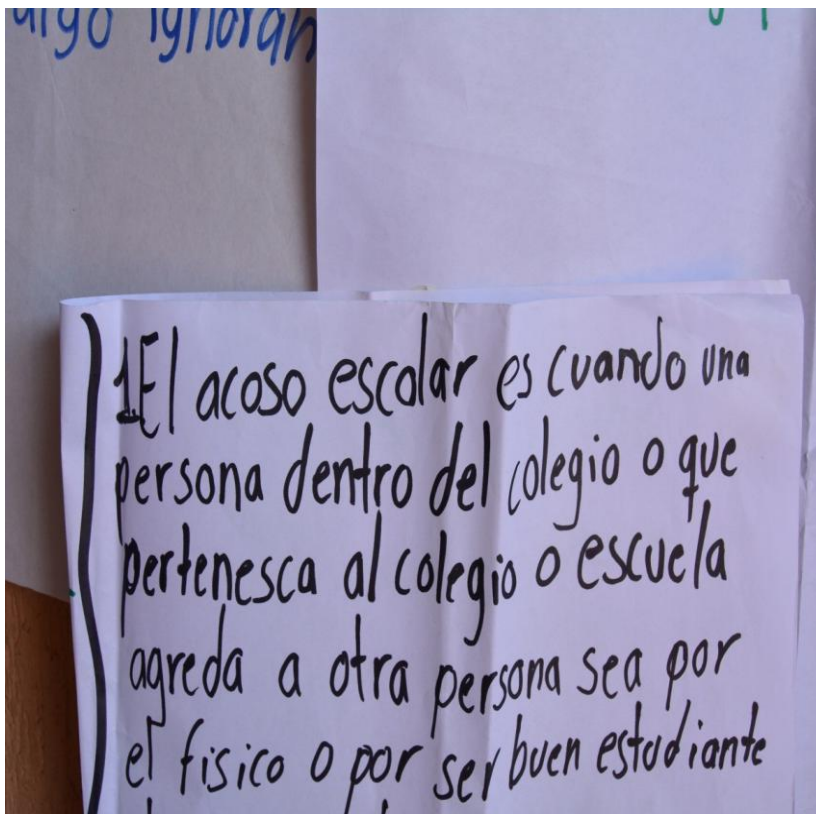 algo ignoran
1. El acoso escolar es cuando una
persona dentro del colegio o que
pertenesca al colegio o escuela
agreda a otra persona sea por
el fisico o por ser buen estudiante